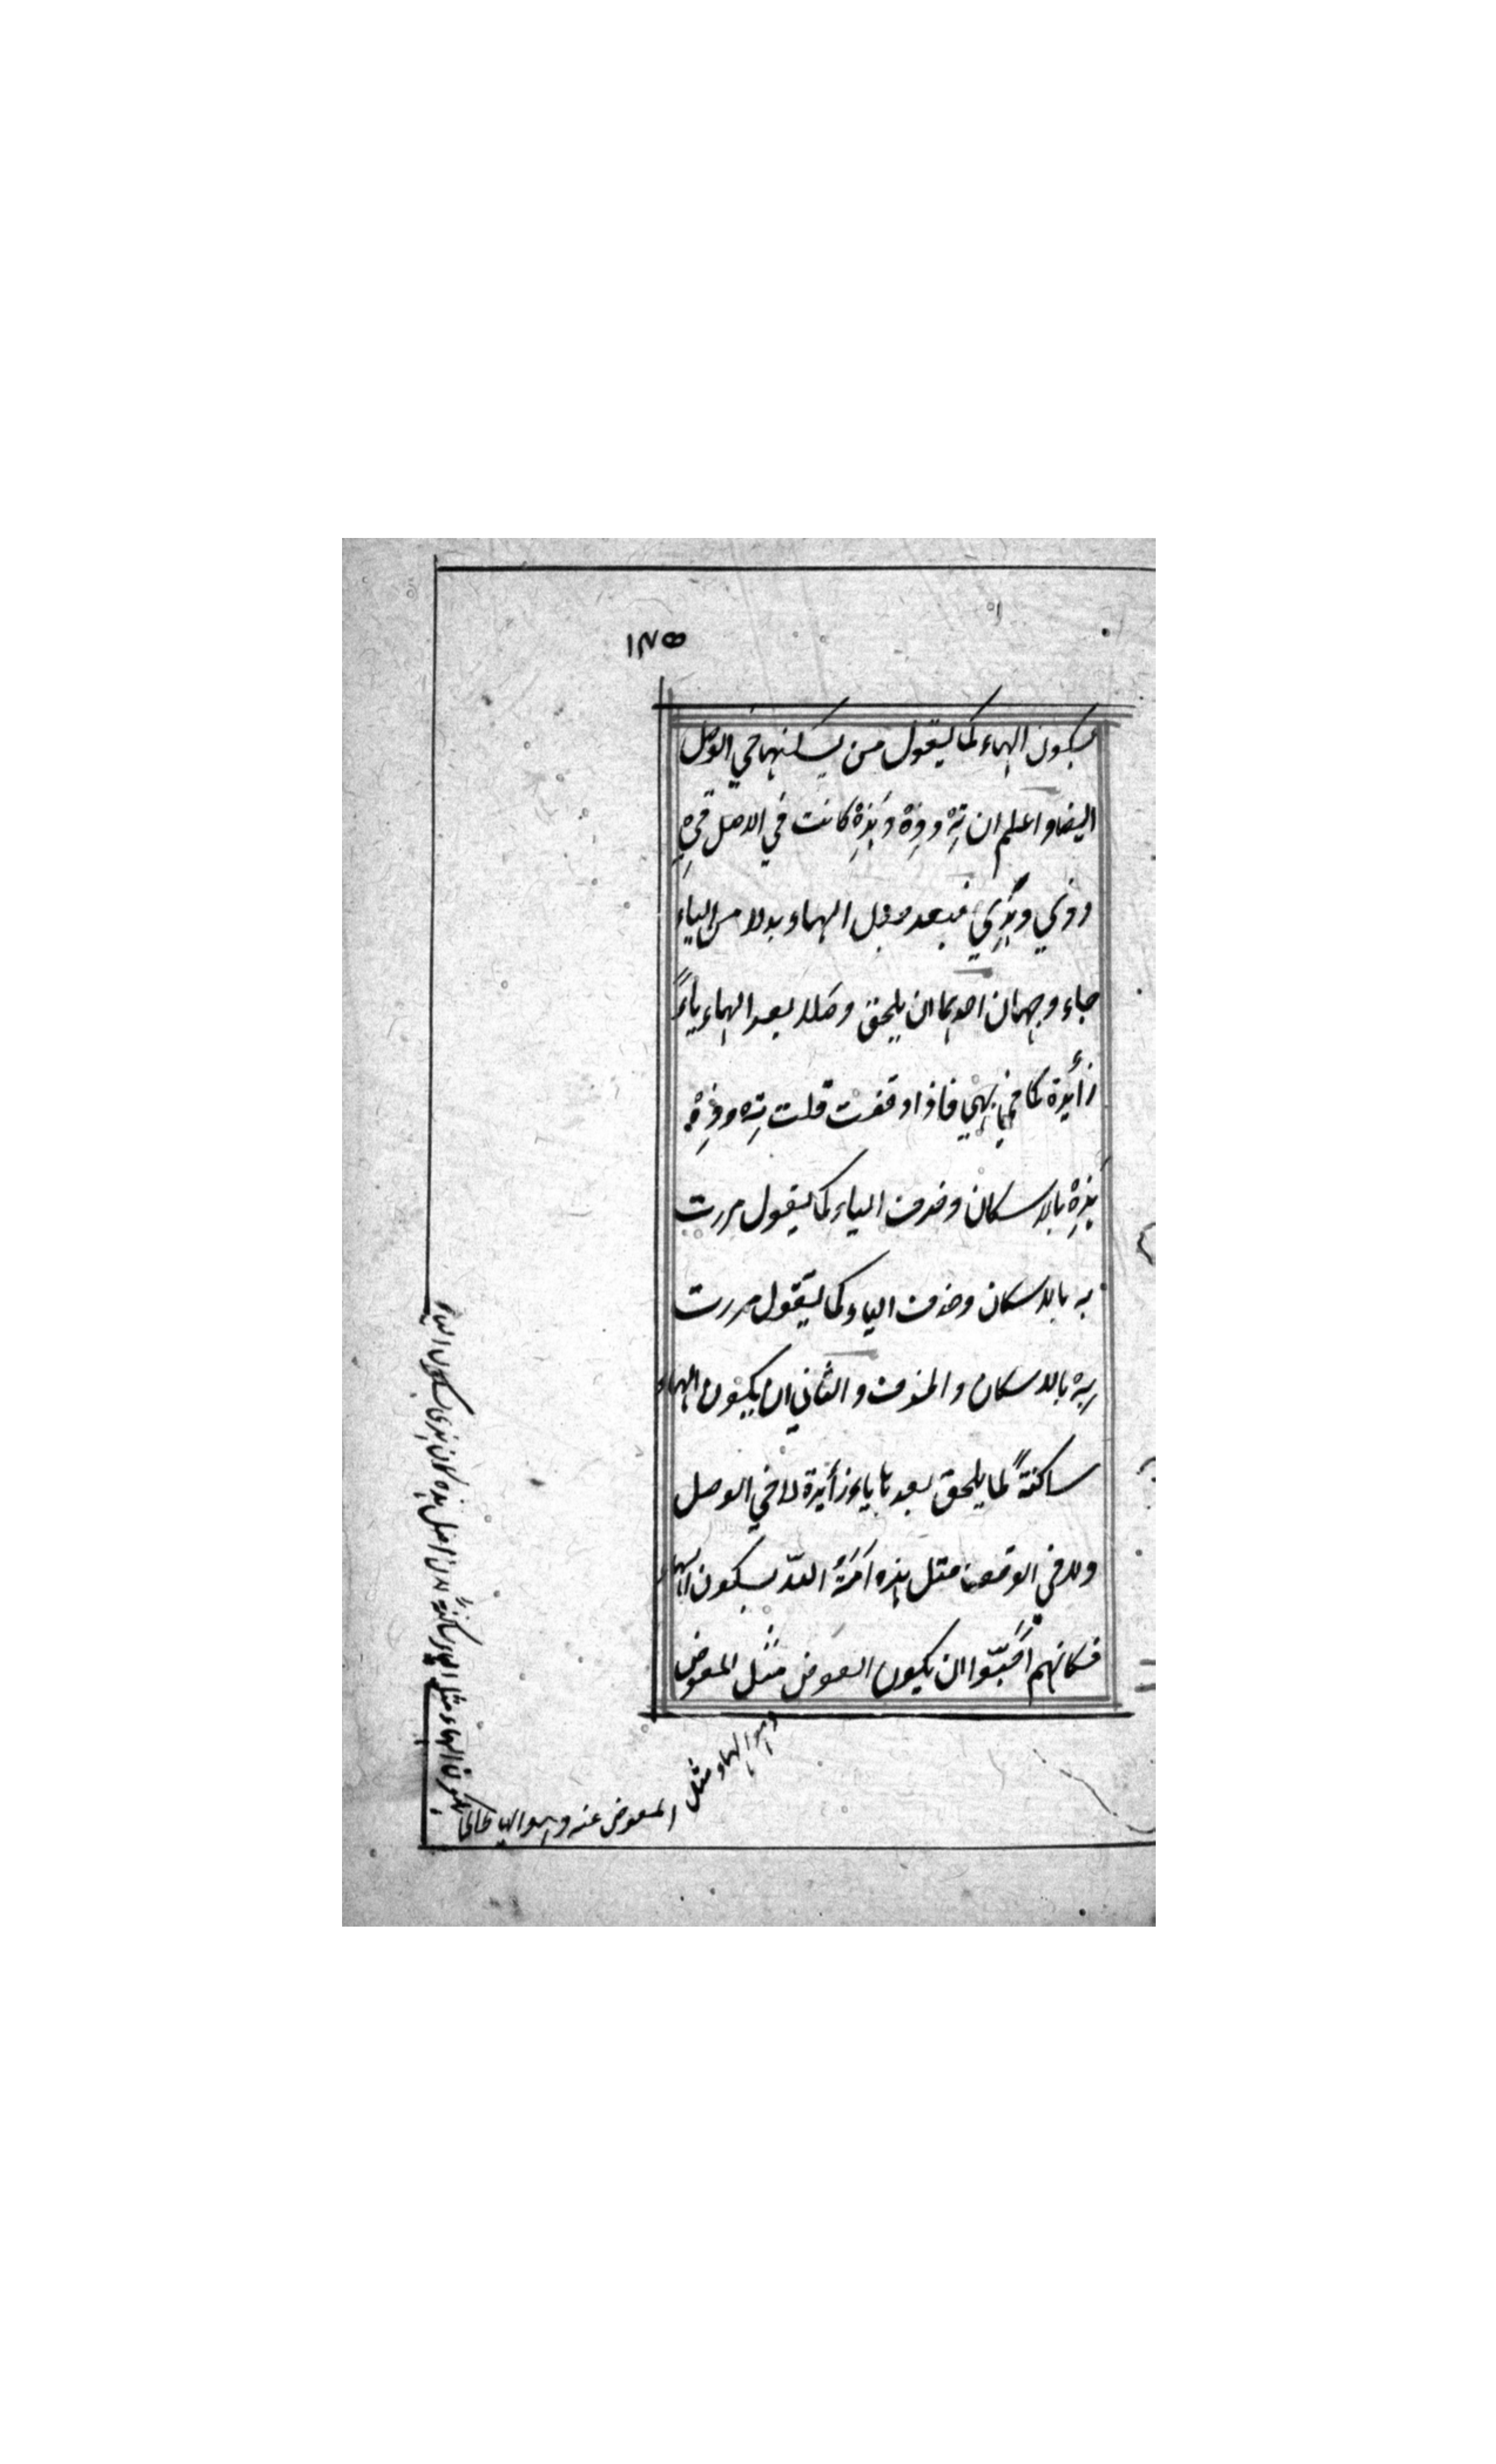 ١٧٥
بسكون الهاء كما يقول من يسكنها في الوصل
ايضا واعلم ان تِهْ وذِهْ وهٰذِهْ كانت في الاصل تي
وذي وهذي فبعد جعل الهاء بدلا من الياء
جاء وجهان احدهما ان يلحق وصلا بعد الهاء ياءً
زائدة كما في بهي فاذا وقفت قلت ته وذِهْ
هذِهْ بالاسكان وحذف الياء كما يقول مررت
به بالاسكان وحذف الياء كما يقول مررت
بِهْ بالاسكان والحذف والثاني ان يكون الهاء
ساكنةً لما يلحق بعدها ياء زائدة لا في الوصل
ولا في الوقف مثل هذه اَمَةُ اللّه بسكون الهاء
فكانهم اَحَبّوا ان يكون العوض مثل المعوض
وهو الهاء مثل
المعوض عنه وهو الياء كما
يكون الهاء مثل الياء ساكنة لان اصل هذه كان هذي بسكون الياء